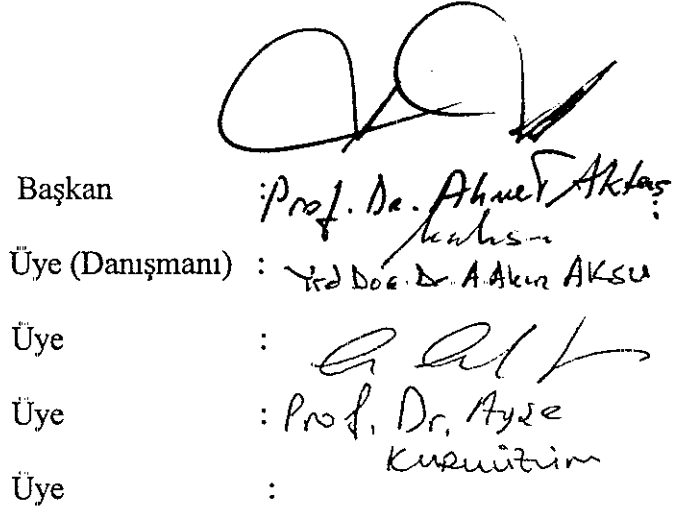 Başkan : Prof. Dr. Ahmet Aktaş
Üye (Danışmanı) : Yrd Doç. Dr. A. Akın AKSU
Üye :
Üye : Prof. Dr. Ayşe
Üye :